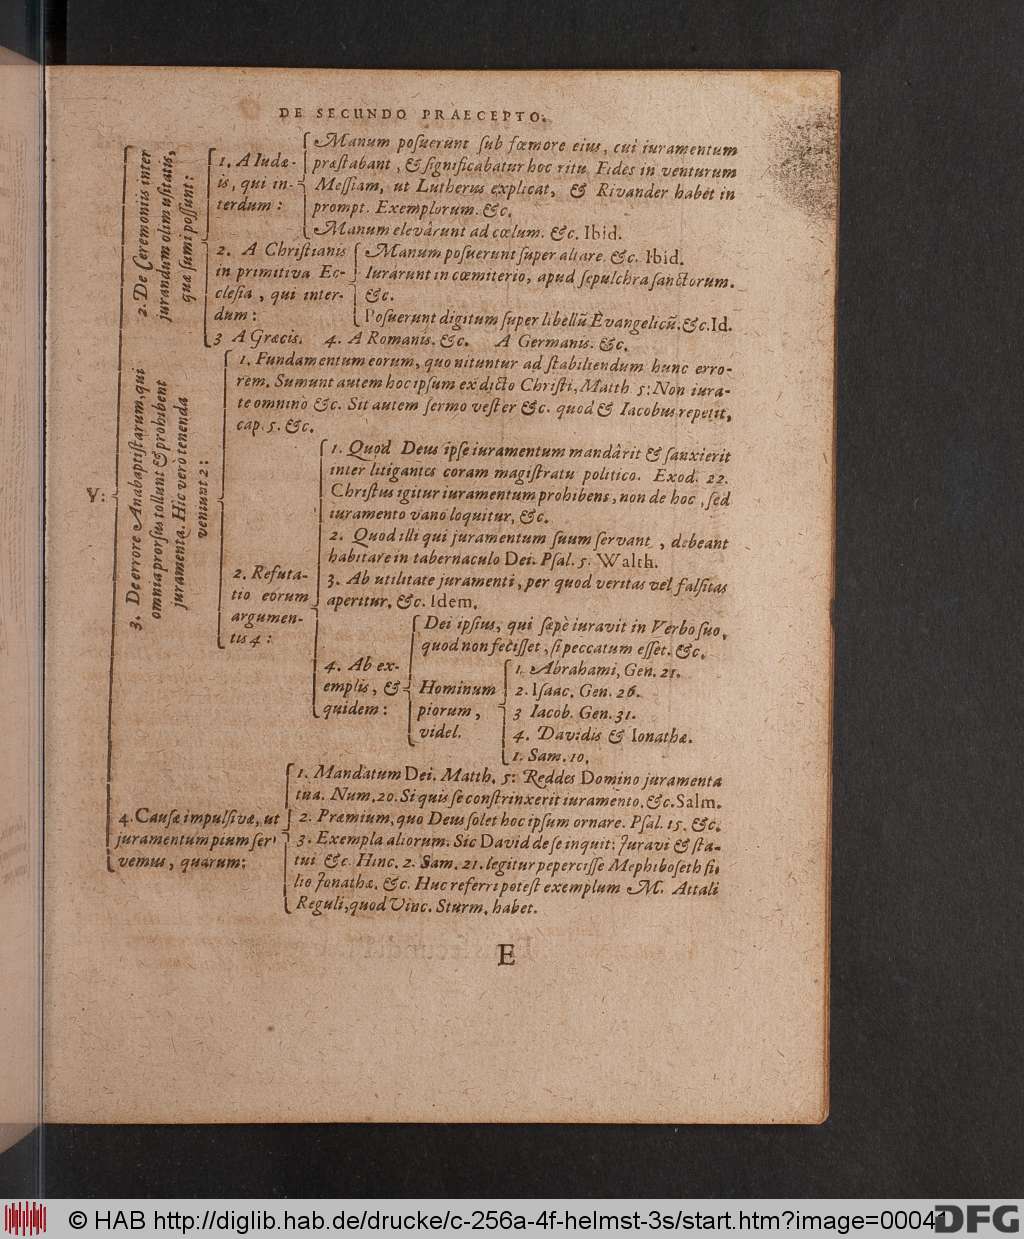 DE SECUNDO PRAECEPTO.
V:
2. De Ceremoniis inter
jurandum olim usitatis,
quæ sumi possunt:
1. A Iudæ-
is, qui in-
terdum:
Manum posuerunt sub fœmore eius, cui iuramentum
præstabant, & significabatur hoc ritu Fides in venturum
Messiam, ut Lutherus explicat, & Rivander habet in
prompt. Exemplorum. &c.
Manum elevârunt ad cœlum. &c. Ibid.
2. A Christianis
in primitiva Ec-
clesia, qui inter-
dum:
Manum posuerunt super altare &c. Ibid.
Iurarunt in cœmiterio, apud sepulchra sanctorum.
&c.
Posuerunt digitum super libellũ Evangelicũ.&c.Id.
3 A Græcis. 4. A Romanis. &c. A Germanis. &c.
3. De errore Anabaptistarum, qui
omnia prorsus tollunt & prohibent
juramenta. Hic verò tenenda
veniunt 2:
1. Fundamentum eorum, quo nituntur ad stabiliendum hunc erro-
rem. Sumunt autem hoc ipsum ex dicto Christi, Matth 5: Non iura-
te omnino &c. Sit autem sermo vester &c. quod & Iacobus repetit,
cap. 5. &c.
2. Refuta-
tio eorum
argumen-
tis 4:
1. Quod Deus ipse iuramentum mandârit & sanxierit
inter litigantes coram magistratu politico. Exod. 22.
Christus igitur iuramentum prohibens, non de hoc, sed
iuramento vano loquitur, &c.
2. Quod illi qui juramentum suum servant, debeant
habitare in tabernaculo Dei. Psal. 5. Walth.
3. Ab utilitate juramenti, per quod veritas vel falsitas
aperitur. &c. Idem.
4. Ab ex-
emplis, &
quidem:
Dei ipsius, qui sæpè iuravit in Verbo suo,
quod non fecisset, si peccatum esset. &c.
Hominum
piorum,
videl.
1. Abrahami, Gen. 21.
2. Isaac. Gen. 26.
3 Iacob. Gen. 31.
4. Davidis & Ionathæ.
1. Sam. 10.
4. Causæ impulsivæ, ut
juramentum pium ser-
vemus, quarum:
1. Mandatum Dei. Matth. 5: Reddes Domino juramenta
tua. Num. 20. Si quis se constrinxerit iuramento. &c. Salm.
2. Præmium, quo Deus solet hoc ipsum ornare. Psal. 15. &c.
3. Exempla aliorum. Sic David de se inquit: Juravi & sta-
tui &c Hinc. 2. Sam. 21. legitur pepercisse Mephiboseth fi-
lio Jonathæ. &c. Huc referri potest exemplum M. Attali
Reguli, quod Vinc. Sturm. habet.
E
© HAB http://diglib.hab.de/drucke/c-256a-4f-helmst-3s/start.htm?image=00041
DFG